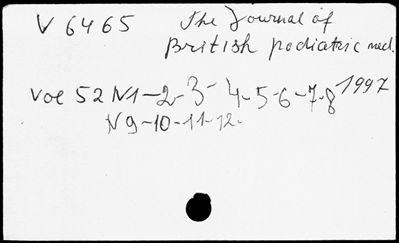 V 6465 The Journal of
British podiatric med.
Vol 52 N1-2-3-4-5-6-7-8 1997
N9-10-11-12-